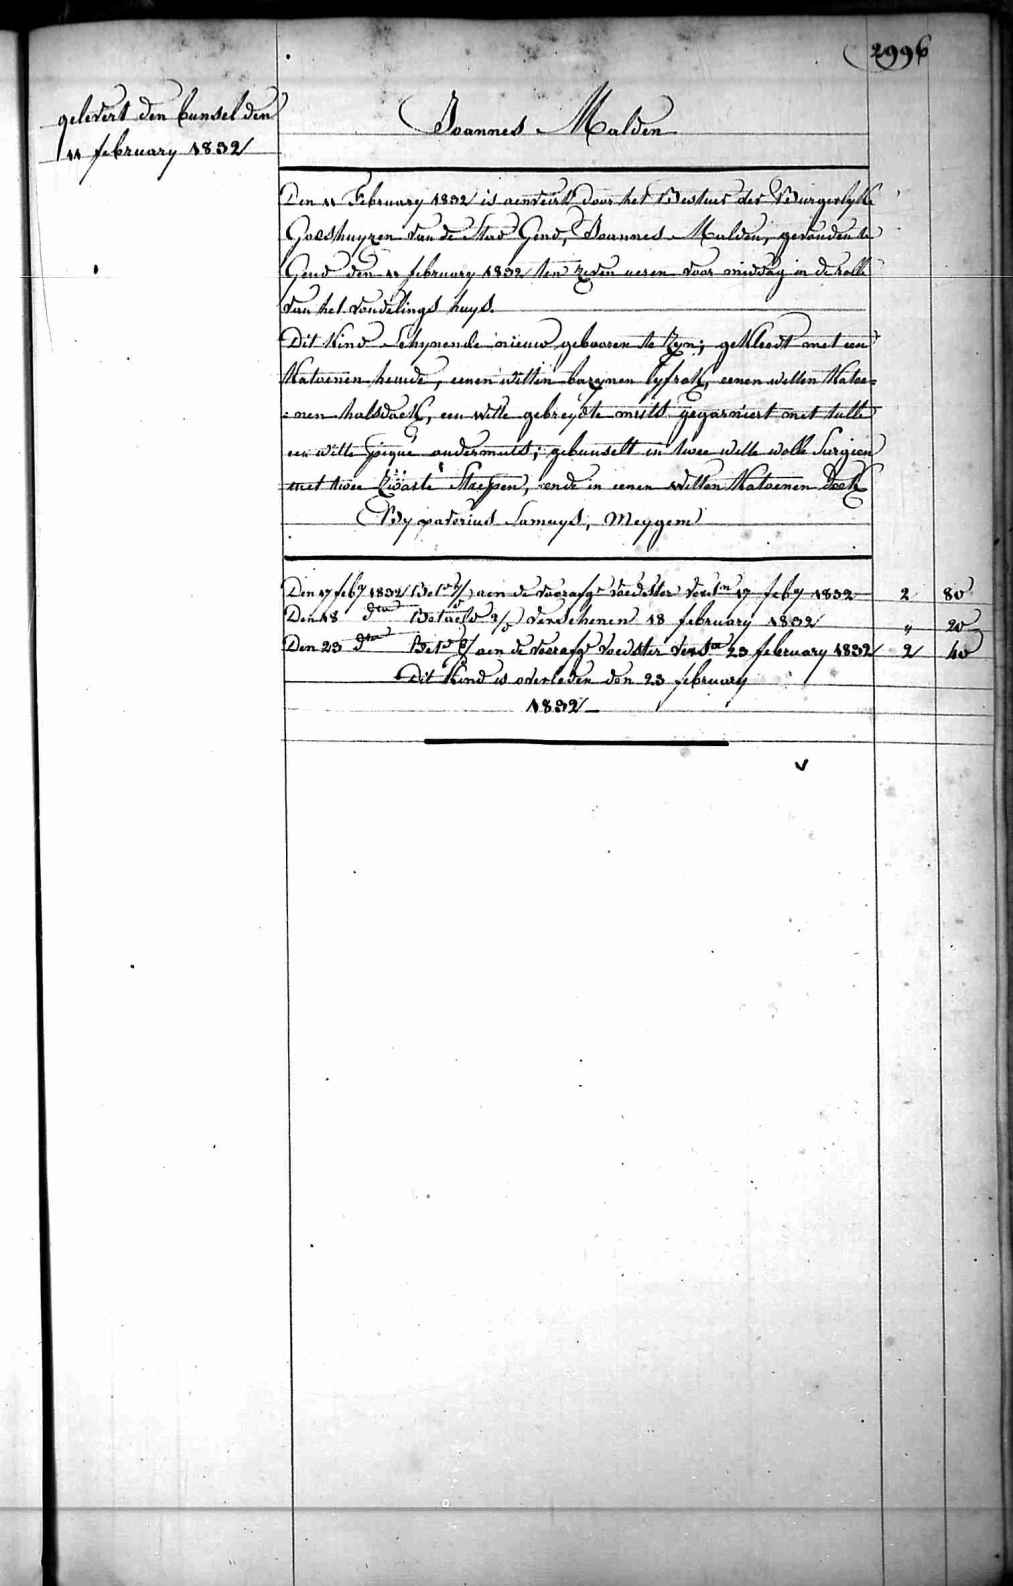 2996
gelevert den bunsel den
11 february 1832
Joannes Malden
Den 11 February 1832 is aenveirt door het Bestuer der Burgerlyke
Godshuyzen van de Stad Gend, Joannes Malden, gevonden te
Gend den 11 february 1832 ten zeven ueren voor middag in de rolle
van het vondelings huys.
Dit Kind schynende nieuw gebooren te zyn; gekleedt met een
Katoenen hemde, eenen witten bazynen lyfrok, eenen witten Katoe=
=nen halsdoek, een witte gebreyde muts gegarniert met tulle
een witte piqué ondermuts; gebunselt in twee witte wolle Sargien
met twee zwarte Streepen, ende in eenen witten Katoenen doek
By paterius Lamuys, Meygem
Den 17 feby 1832 Bet. aen de voorafge voedster versn 17 feby 1832 2 80
Den 18 dto Betaeld verschenen 18 february 1832 " 20
Den 23 dto Bet. aen de voorafge voedster versn 23 february 1832 2 40
Dit Kind is overleden den 23 february
1832